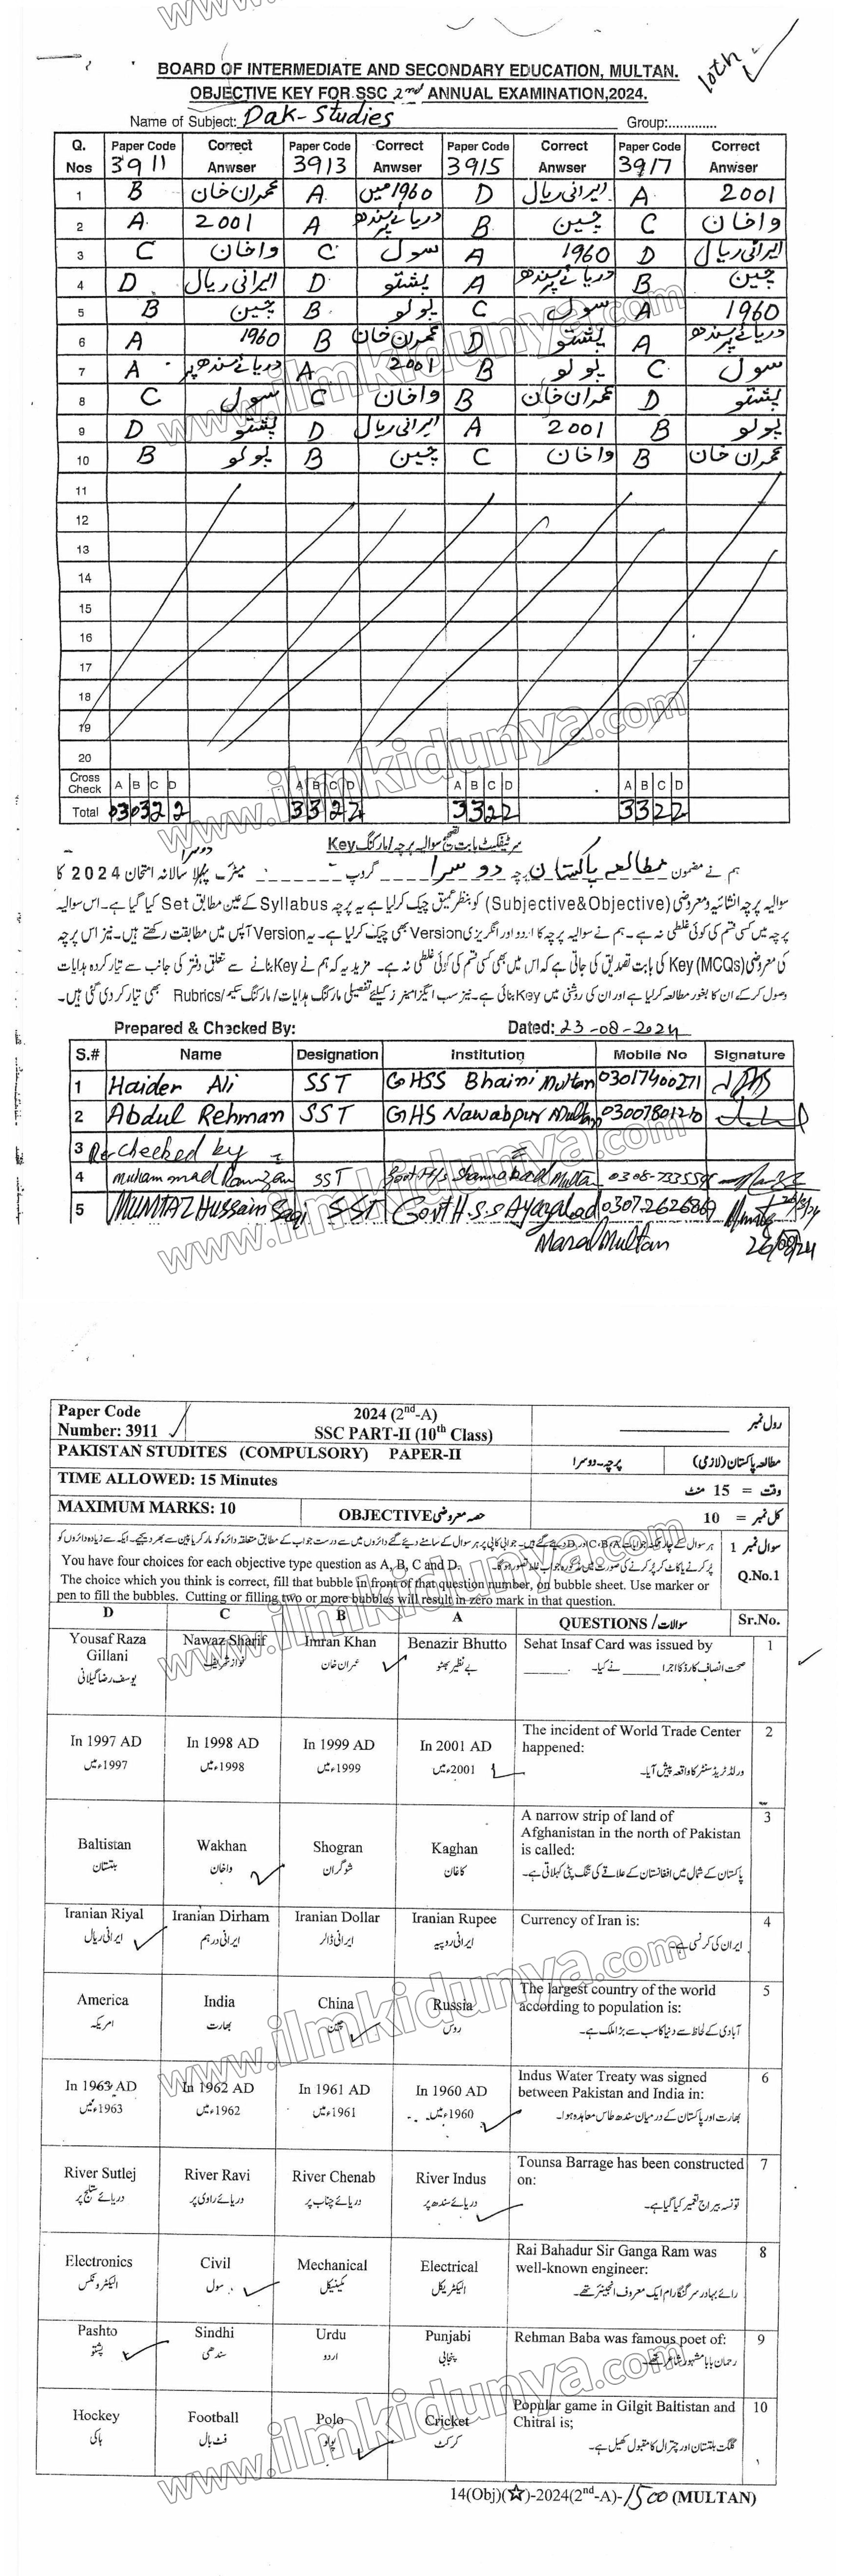 BOARD OF INTERMEDIATE AND SECONDARY EDUCATION, MULTAN.
10th
OBJECTIVE KEY FOR SSC 2nd ANNUAL EXAMINATION,2024.
Name of Subject: Pak-Studies Group:.............
Q. Nos Paper Code 3911 Correct Anwser Paper Code 3913 Correct Anwser Paper Code 3915 Correct Anwser Paper Code 3917 Correct Anwser
1 B عمران خان A 1960 میں D ایرانی ریال A 2001
2 A 2001 A دریائے سندھ پر B چین C واخان
3 C واخان C سول A 1960 D ایرانی ریال
4 D ایرانی ریال D پشتو A دریائے سندھ پر B چین
5 B چین B پولو C سول A 1960
6 A 1960 B عمران خان D پشتو A دریائے سندھ پر
7 A دریائے سندھ پر A 2001 B پولو C سول
8 C سول C واخان B عمران خان D پشتو
9 D پشتو D ایرانی ریال A 2001 B پولو
10 B پولو B چین C واخان B عمران خان
11
12
13
14
15
16
17
18
19
20
Cross Check A B C D A B C D A B C D A B C D
Total 03 03 2 2 3 3 2 2 3 3 2 2 3 3 2 2
سرٹیفکیٹ بابت تصحیح سوالیہ پرچہ/مارکنگ Key
دوسرا
ہم نے مضمون مطالعہ پاکستان پرچہ دوسرا گروپ میٹرک پہلا سالانہ امتحان 2024 کا
سوالیہ پرچہ انشائیہ ومعروضی (Subjective&Objective) کو بنظر عمیق چیک کرلیا ہے یہ پرچہ Syllabus کے عین مطابق Set کیا گیا ہے۔ اس سوالیہ
پرچہ میں کسی قسم کی کوئی غلطی نہ ہے۔ ہم نے سوالیہ پرچہ کا اردو اور انگریزی Version بھی چیک کرلیا ہے۔ یہ Version آپس میں مطابقت رکھتے ہیں۔ نیز اس پرچہ
کی معروضی (MCQs) Key کی بابت تصدیق کی جاتی ہے کہ اس میں بھی کسی قسم کی کوئی غلطی نہ ہے۔ مزید یہ کہ ہم نے Key بنانے سے متعلق دفتر کی جانب سے تیار کردہ ہدایات
وصول کرکے ان کا بغور مطالعہ کرلیا ہے اور ان کی روشنی میں Key بنائی ہے۔ نیز سب ایگزامینرز کیلئے تفصیلی مارکنگ ہدایات/مارکنگ سکیم/Rubrics بھی تیار کر دی گئی ہیں۔
Prepared & Checked By: Dated: 23-08-2024
S.# Name Designation Institution Mobile No Signature
1 Haider Ali SST GHSS Bhaini Multan 03017400271
2 Abdul Rehman SST GHS Nawabpur Multan 03007801210
3 Re-checked by
4 Muhammad Ramzan SST Govt H/S Shamsabad Multan
5 MUMTAZ Hussain Saqi SST Govt H.S.S Ayazabad 03072626869
Maral Multan 26/08/24
Paper Code 2024 (2nd-A) رول نمبر
Number: 3911 SSC PART-II (10th Class)
PAKISTAN STUDITES (COMPULSORY) PAPER-II پرچہ-دوسرا مطالعہ پاکستان (لازمی)
TIME ALLOWED: 15 Minutes وقت = 15 منٹ
MAXIMUM MARKS: 10 OBJECTIVE حصہ معروضی کل نمبر = 10
سوال نمبر 1 ہر سوال کے چار ممکنہ جوابات C،B،A اور D دیئے گئے ہیں۔ جوابی کاپی پر ہر سوال کے سامنے دیئے گئے دائروں میں سے درست جواب کے مطابق متعلقہ دائرہ کو مارکر یا پین سے بھر دیجیے۔ ایک سے زیادہ دائروں کو
پُر کرنے یا کاٹ کر پُر کرنے کی صورت میں مذکورہ جواب غلط تصور ہوگا۔
You have four choices for each objective type question as A, B, C and D. Q.No.1
The choice which you think is correct, fill that bubble in front of that question number, on bubble sheet. Use marker or
pen to fill the bubbles. Cutting or filling two or more bubbles will result in zero mark in that question.
D C B A QUESTIONS / سوالات Sr.No.
Yousaf Raza Gillani Nawaz Sharif Imran Khan Benazir Bhutto Sehat Insaf Card was issued by 1
یوسف رضا گیلانی نواز شریف عمران خان بے نظیر بھٹو صحت انصاف کارڈ کا اجرا ______ نے کیا۔
In 1997 AD In 1998 AD In 1999 AD In 2001 AD The incident of World Trade Center happened: 2
1997ء میں 1998ء میں 1999ء میں 2001ء میں ورلڈ ٹریڈ سنٹر کا واقعہ پیش آیا۔
Baltistan Wakhan Shogran Kaghan A narrow strip of land of Afghanistan in the north of Pakistan is called: 3
بلتستان واخان شوگران کاغان پاکستان کے شمال میں افغانستان کے علاقے کی تنگ پٹی کہلاتی ہے۔
Iranian Riyal Iranian Dirham Iranian Dollar Iranian Rupee Currency of Iran is: 4
ایرانی ریال ایرانی درہم ایرانی ڈالر ایرانی روپیہ ایران کی کرنسی ہے۔
America India China Russia The largest country of the world according to population is: 5
امریکہ بھارت چین روس آبادی کے لحاظ سے دنیا کا سب سے بڑا ملک ہے۔
In 1963 AD In 1962 AD In 1961 AD In 1960 AD Indus Water Treaty was signed between Pakistan and India in: 6
1963ء میں 1962ء میں 1961ء میں 1960ء میں بھارت اور پاکستان کے درمیان سندھ طاس معاہدہ ہوا۔
River Sutlej River Ravi River Chenab River Indus Tounsa Barrage has been constructed on: 7
دریائے ستلج پر دریائے راوی پر دریائے چناب پر دریائے سندھ پر تونسہ بیراج تعمیر کیا گیا ہے۔
Electronics Civil Mechanical Electrical Rai Bahadur Sir Ganga Ram was well-known engineer: 8
الیکٹرونکس سول مکینیکل الیکٹریکل رائے بہادر سر گنگا رام ایک معروف انجینئر تھے۔
Pashto Sindhi Urdu Punjabi Rehman Baba was famous poet of: 9
پشتو سندھی اردو پنجابی رحمان بابا مشہور شاعر تھے۔
Hockey Football Polo Cricket Popular game in Gilgit Baltistan and Chitral is; 10
ہاکی فٹ بال پولو کرکٹ گلگت بلتستان اور چترال کا مقبول کھیل ہے۔
14(Obj)(☆)-2024(2nd-A)-1500 (MULTAN)
www.ilmkidunya.com